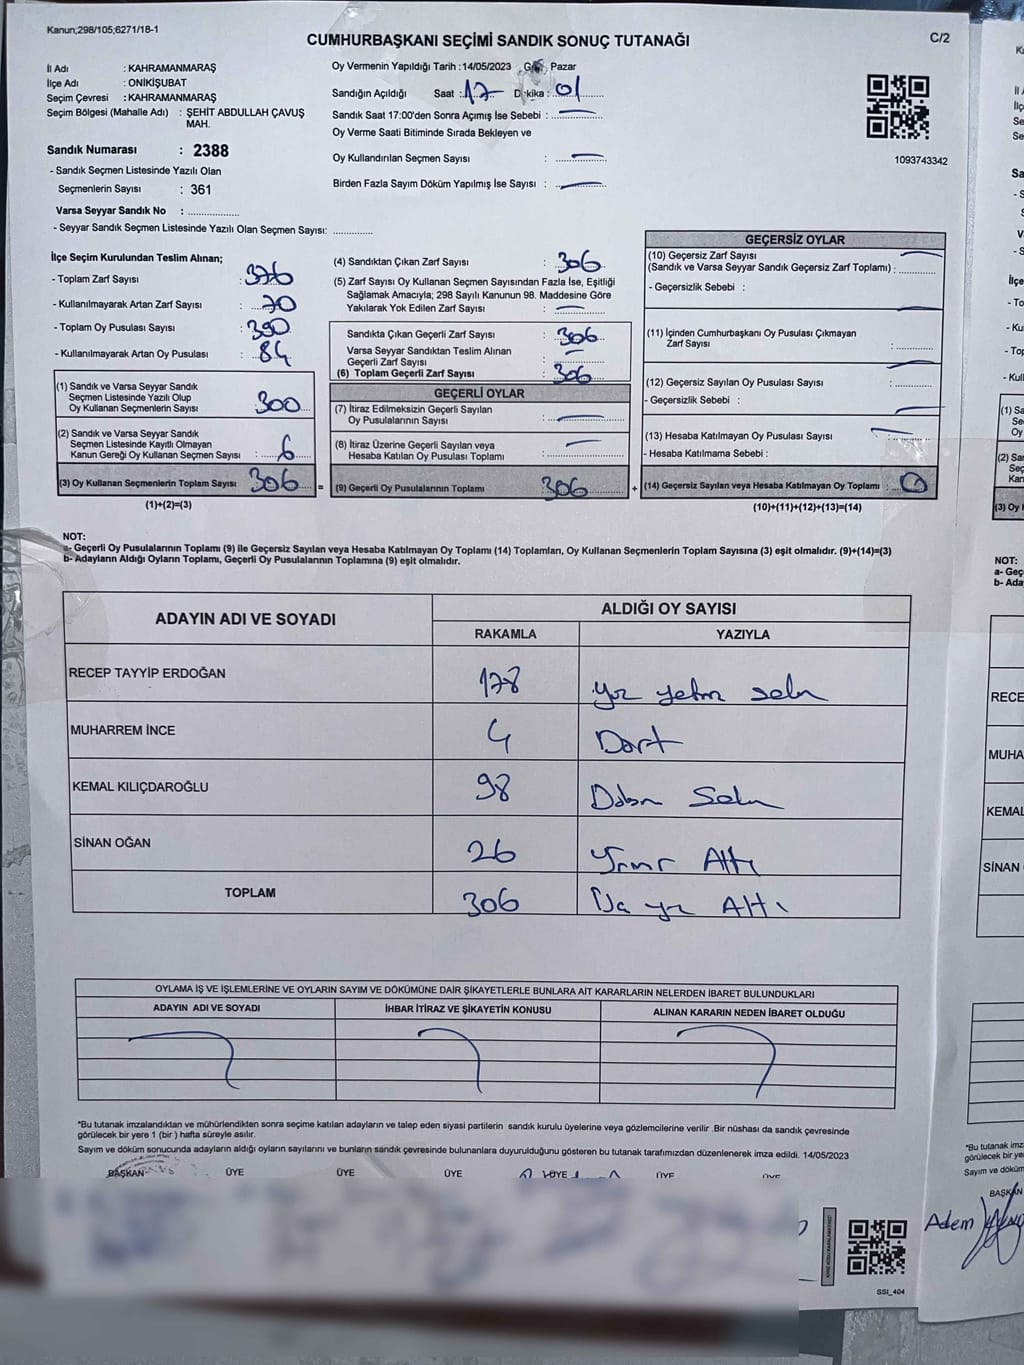 Kanun;298/105;6271/18-1
C/2
CUMHURBAŞKANI SEÇİMİ SANDIK SONUÇ TUTANAĞI
İl Adı : KAHRAMANMARAŞ
İlçe Adı : ONİKİŞUBAT
Seçim Çevresi : KAHRAMANMARAŞ
Seçim Bölgesi (Mahalle Adı) : ŞEHİT ABDULLAH ÇAVUŞ
MAH.
Sandık Numarası : 2388
- Sandık Seçmen Listesinde Yazılı Olan
Seçmenlerin Sayısı : 361
Varsa Seyyar Sandık No : ..................
- Seyyar Sandık Seçmen Listesinde Yazılı Olan Seçmen Sayısı: .............
Oy Vermenin Yapıldığı Tarih : 14/05/2023 Pazar
Sandığın Açıldığı Saat : 17 Dakika : 01
Sandık Saat 17:00'den Sonra Açımış İse Sebebi :
Oy Verme Saati Bitiminde Sırada Bekleyen ve
Oy Kullandırılan Seçmen Sayısı :
Birden Fazla Sayım Döküm Yapılmış İse Sayısı :
1093743342
İlçe Seçim Kurulundan Teslim Alınan;
- Toplam Zarf Sayısı : 376
- Kullanılmayarak Artan Zarf Sayısı : 70
- Toplam Oy Pusulası Sayısı : 390
- Kullanılmayarak Artan Oy Pusulası : 84
(1) Sandık ve Varsa Seyyar Sandık
Seçmen Listesinde Yazılı Olup
Oy Kullanan Seçmenlerin Sayısı 300
(2) Sandık ve Varsa Seyyar Sandık
Seçmen Listesinde Kayıtlı Olmayan
Kanun Gereği Oy Kullanan Seçmen Sayısı : 6
(3) Oy Kullanan Seçmenlerin Toplam Sayısı 306
(1)+(2)=(3)
(4) Sandıktan Çıkan Zarf Sayısı : 306
(5) Zarf Sayısı Oy Kullanan Seçmen Sayısından Fazla İse, Eşitliği
Sağlamak Amacıyla; 298 Sayılı Kanunun 98. Maddesine Göre
Yakılarak Yok Edilen Zarf Sayısı :
Sandıkta Çıkan Geçerli Zarf Sayısı : 306
Varsa Seyyar Sandıktan Teslim Alınan
Geçerli Zarf Sayısı :
(6) Toplam Geçerli Zarf Sayısı : 306
GEÇERLİ OYLAR
(7) İtiraz Edilmeksizin Geçerli Sayılan
Oy Pusulalarının Sayısı :
(8) İtiraz Üzerine Geçerli Sayılan veya
Hesaba Katılan Oy Pusulası Toplamı :
= (9) Geçerli Oy Pusulalarının Toplamı 306
GEÇERSİZ OYLAR
(10) Geçersiz Zarf Sayısı
(Sandık ve Varsa Seyyar Sandık Geçersiz Zarf Toplamı) :
- Geçersizlik Sebebi :
(11) İçinden Cumhurbaşkanı Oy Pusulası Çıkmayan
Zarf Sayısı :
(12) Geçersiz Sayılan Oy Pusulası Sayısı :
- Geçersizlik Sebebi :
(13) Hesaba Katılmayan Oy Pusulası Sayısı :
- Hesaba Katılmama Sebebi :
+ (14) Geçersiz Sayılan veya Hesaba Katılmayan Oy Toplamı : 0
(10)+(11)+(12)+(13)=(14)
NOT:
a- Geçerli Oy Pusulalarının Toplamı (9) ile Geçersiz Sayılan veya Hesaba Katılmayan Oy Toplamı (14) Toplamları, Oy Kullanan Seçmenlerin Toplam Sayısına (3) eşit olmalıdır. (9)+(14)=(3)
b- Adayların Aldığı Oyların Toplamı, Geçerli Oy Pusulalarının Toplamına (9) eşit olmalıdır.
ADAYIN ADI VE SOYADI
ALDIĞI OY SAYISI
RAKAMLA YAZIYLA
RECEP TAYYİP ERDOĞAN 178 yüz yetmiş sekiz
MUHARREM İNCE 4 Dört
KEMAL KILIÇDAROĞLU 98 Doksan Sekiz
SİNAN OĞAN 26 Yirmi Altı
TOPLAM 306 Üç yüz Altı
OYLAMA İŞ VE İŞLEMLERİNE VE OYLARIN SAYIM VE DÖKÜMÜNE DAİR ŞİKAYETLERLE BUNLARA AİT KARARLARIN NELERDEN İBARET BULUNDUKLARI
ADAYIN ADI VE SOYADI İHBAR İTİRAZ VE ŞİKAYETİN KONUSU ALINAN KARARIN NEDEN İBARET OLDUĞU
*Bu tutanak imzalandıktan ve mühürlendikten sonra seçime katılan adayların ve talep eden siyasi partilerin sandık kurulu üyelerine veya gözlemcilerine verilir .Bir nüshası da sandık çevresinde
görülecek bir yere 1 (bir ) hafta süreyle asılır.
Sayım ve döküm sonucunda adayların aldığı oyların sayılarını ve bunların sandık çevresinde bulunanlara duyurulduğunu gösteren bu tutanak tarafımızdan düzenlenerek imza edildi. 14/05/2023
BAŞKAN ÜYE ÜYE ÜYE ÜYE ÜYE ÜYE
SSI_404
NOT:
a- Geç
b- Ada
RECE
MUHA
KEMAL
SİNAN
*Bu tutanak imz
görülecek bir ye
Sayım ve döküm
BAŞKAN
Adem